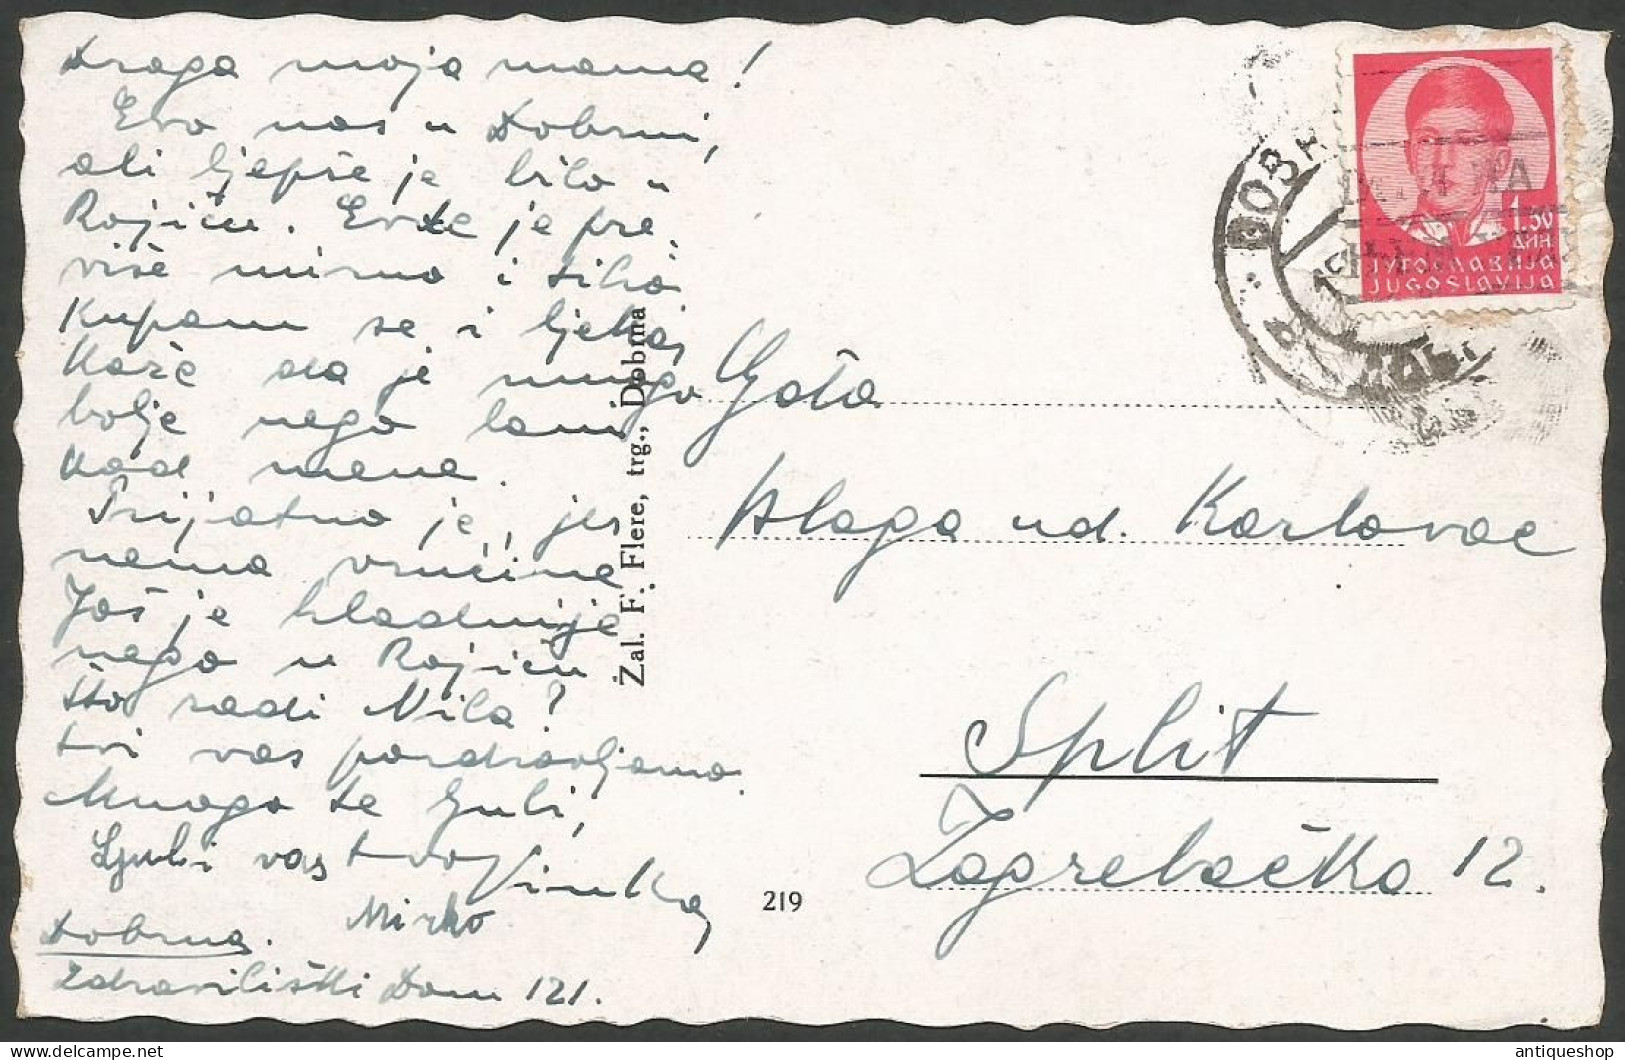 Draga moja mama!
Evo nas u Dobrni,
ali ljepše je bilo u
Rojiću. Evde je pre
više mirno i tiho.
Kupam se i
kaže da je mnogo
bolje nego lani
kod mene.
Prijatno je, jer
nema vrućine
Još je hladnije
nego u Rojiću
Što radi Nila?
vas pozdravljamo.
Mnogo te ljubi,
Ljubi vas tvoj
Mirko
Dobrna.
Zdraviliški Dom 121.
Žal. F. Flere, trg., Dobrna
219
Gđa
Blaga ud. Karlovac
Split
Zagrebačka 12.
1.50
ДИН
ЈУГОСЛАВИЈА
JUGOSLAVIJA
antiqueshop